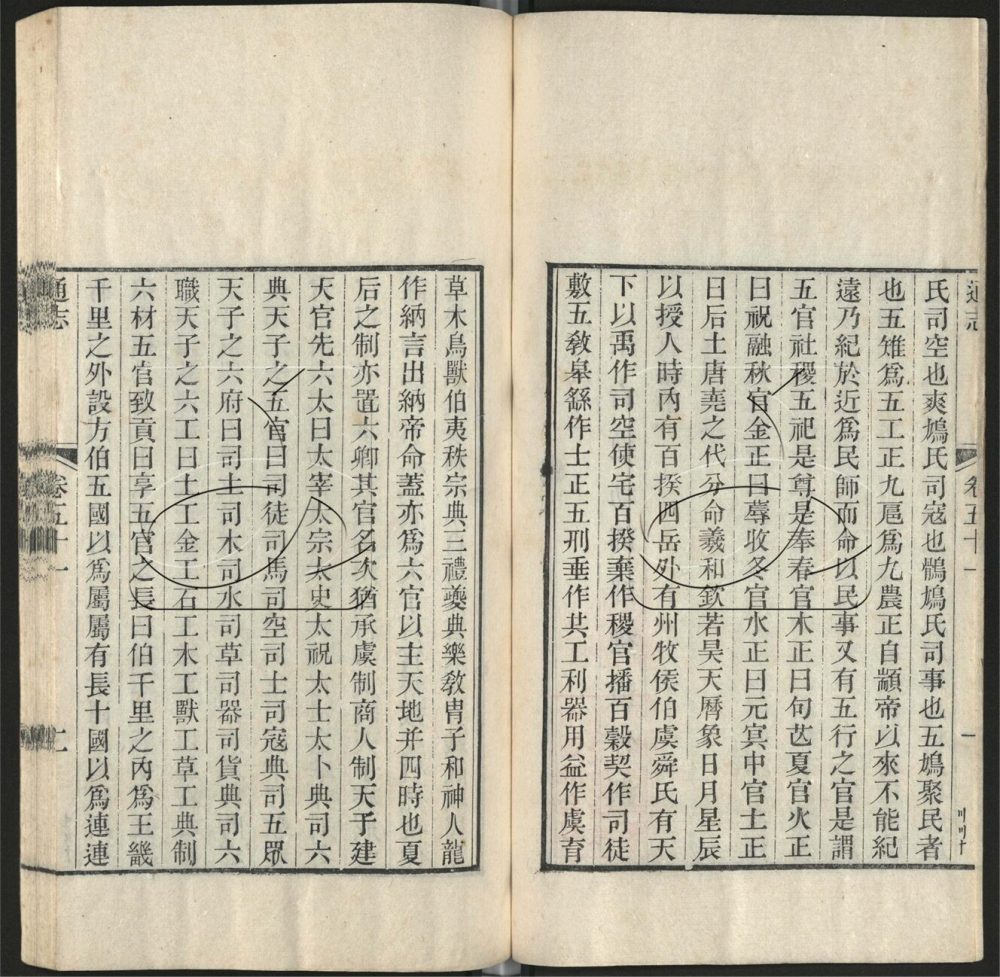 通志
卷五十一
一
氏司空也爽鳩氏司寇也鶻鳩氏司事也五鳩聚民者
也五雉爲五工正九扈爲九農正自顓帝以來不能紀
遠乃紀於近爲民師而命以民事又有五行之官是謂
五官社稷五祀是尊是奉春官木正曰句芒夏官火正
曰祝融秋官金正曰蓐收冬官水正曰元冥中官土正
曰后土唐堯之代分命羲和欽若昊天曆象日月星辰
以授人時內有百揆四岳外有州牧侯伯虞舜氏有天
下以禹作司空使宅百揆棄作稷官播百穀契作司徒
敷五敎皋繇作士正五刑垂作共工利器用益作虞育
草木鳥獸伯夷秩宗典三禮夔典樂敎胄子和神人龍
作納言出納帝命蓋亦爲六官以主天地并四時也夏
后之制亦置六卿其官名次猶承虞制商人制天子建
天官先六太曰太宰太宗太史太祝太士太卜典司六
典天子之五官曰司徒司馬司空司士司寇典司五眾
天子之六府曰司土司木司水司草司器司貨典司六
職天子之六工曰土工金工石工木工獸工草工典制
六材五官致貢曰享五官之長曰伯千里之內爲王畿
千里之外設方伯五國以爲屬屬有長十國以爲連連
通志
卷五十一